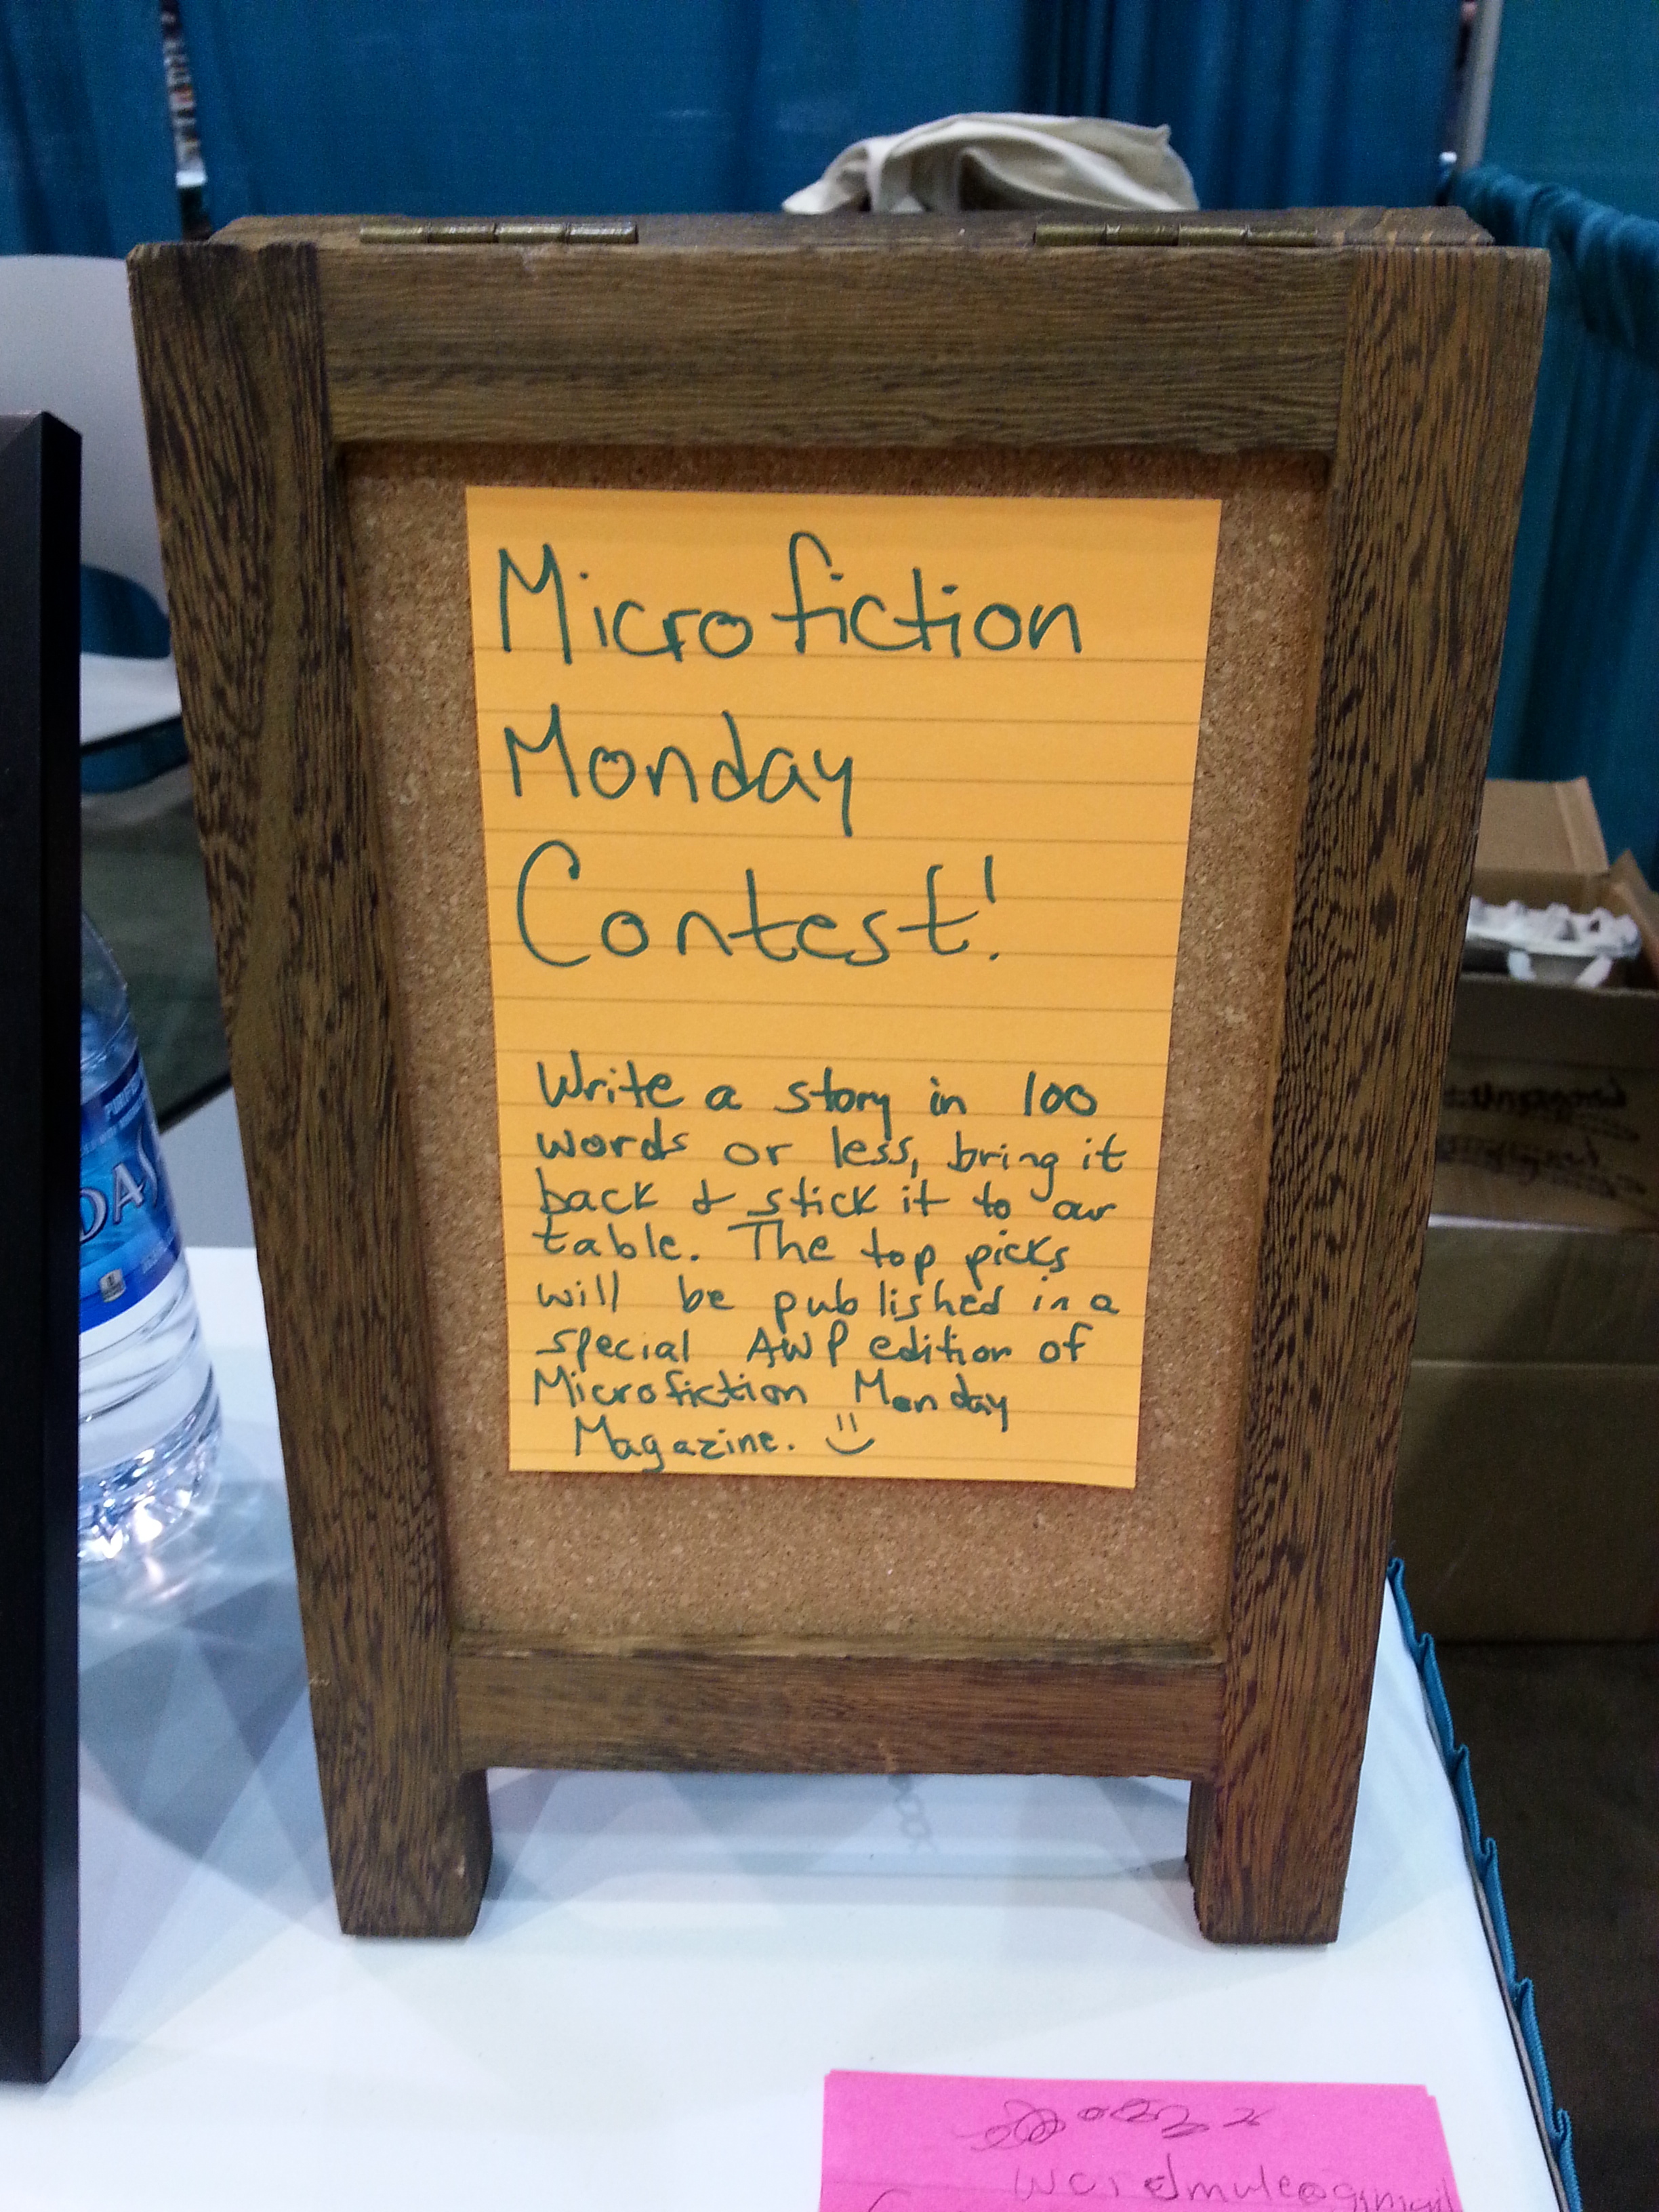 Microfiction
Monday
Contest!
Write a story in 100
words or less, bring it
back & stick it to our
table. The top picks
will be published in a
special AWP edition of
Microfiction Monday
Magazine.